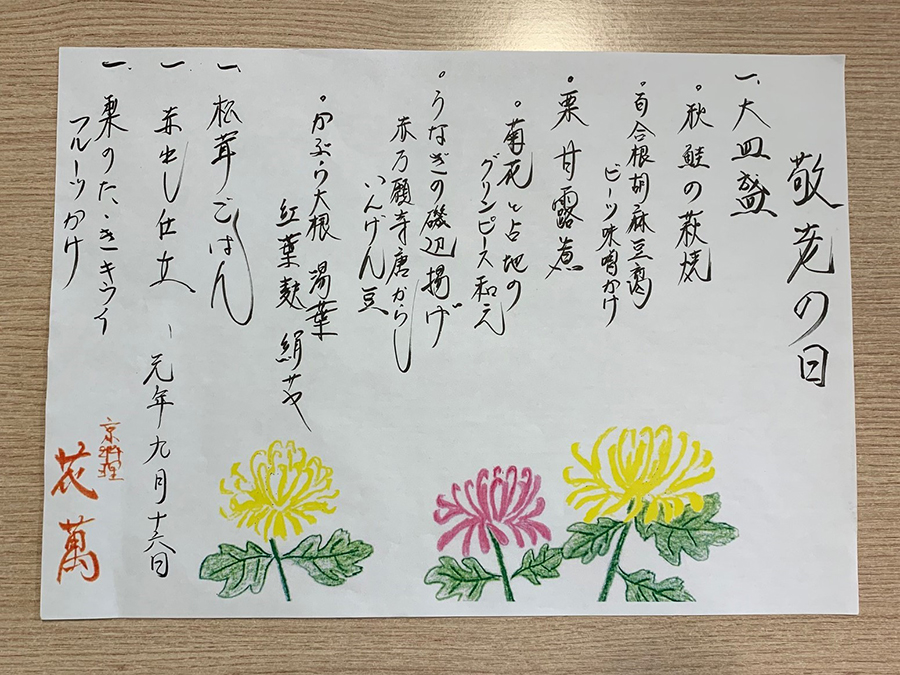 敬老の日
一、大皿盛
。秋鮭の萩焼
。百合根胡麻豆腐
ビーツ味噌かけ
。栗甘露煮
。菊花と占地の
グリンピース和え
。うなぎの磯辺揚げ
赤万願寺唐がらし
いんげん豆
。かぶら大根 湯葉
紅葉麩 絹さや
一、松茸ごはん
一、赤出し仕立
一、栗のたゝきキウイ
フルーツかけ
、元年九月十六日
京料理
花萬